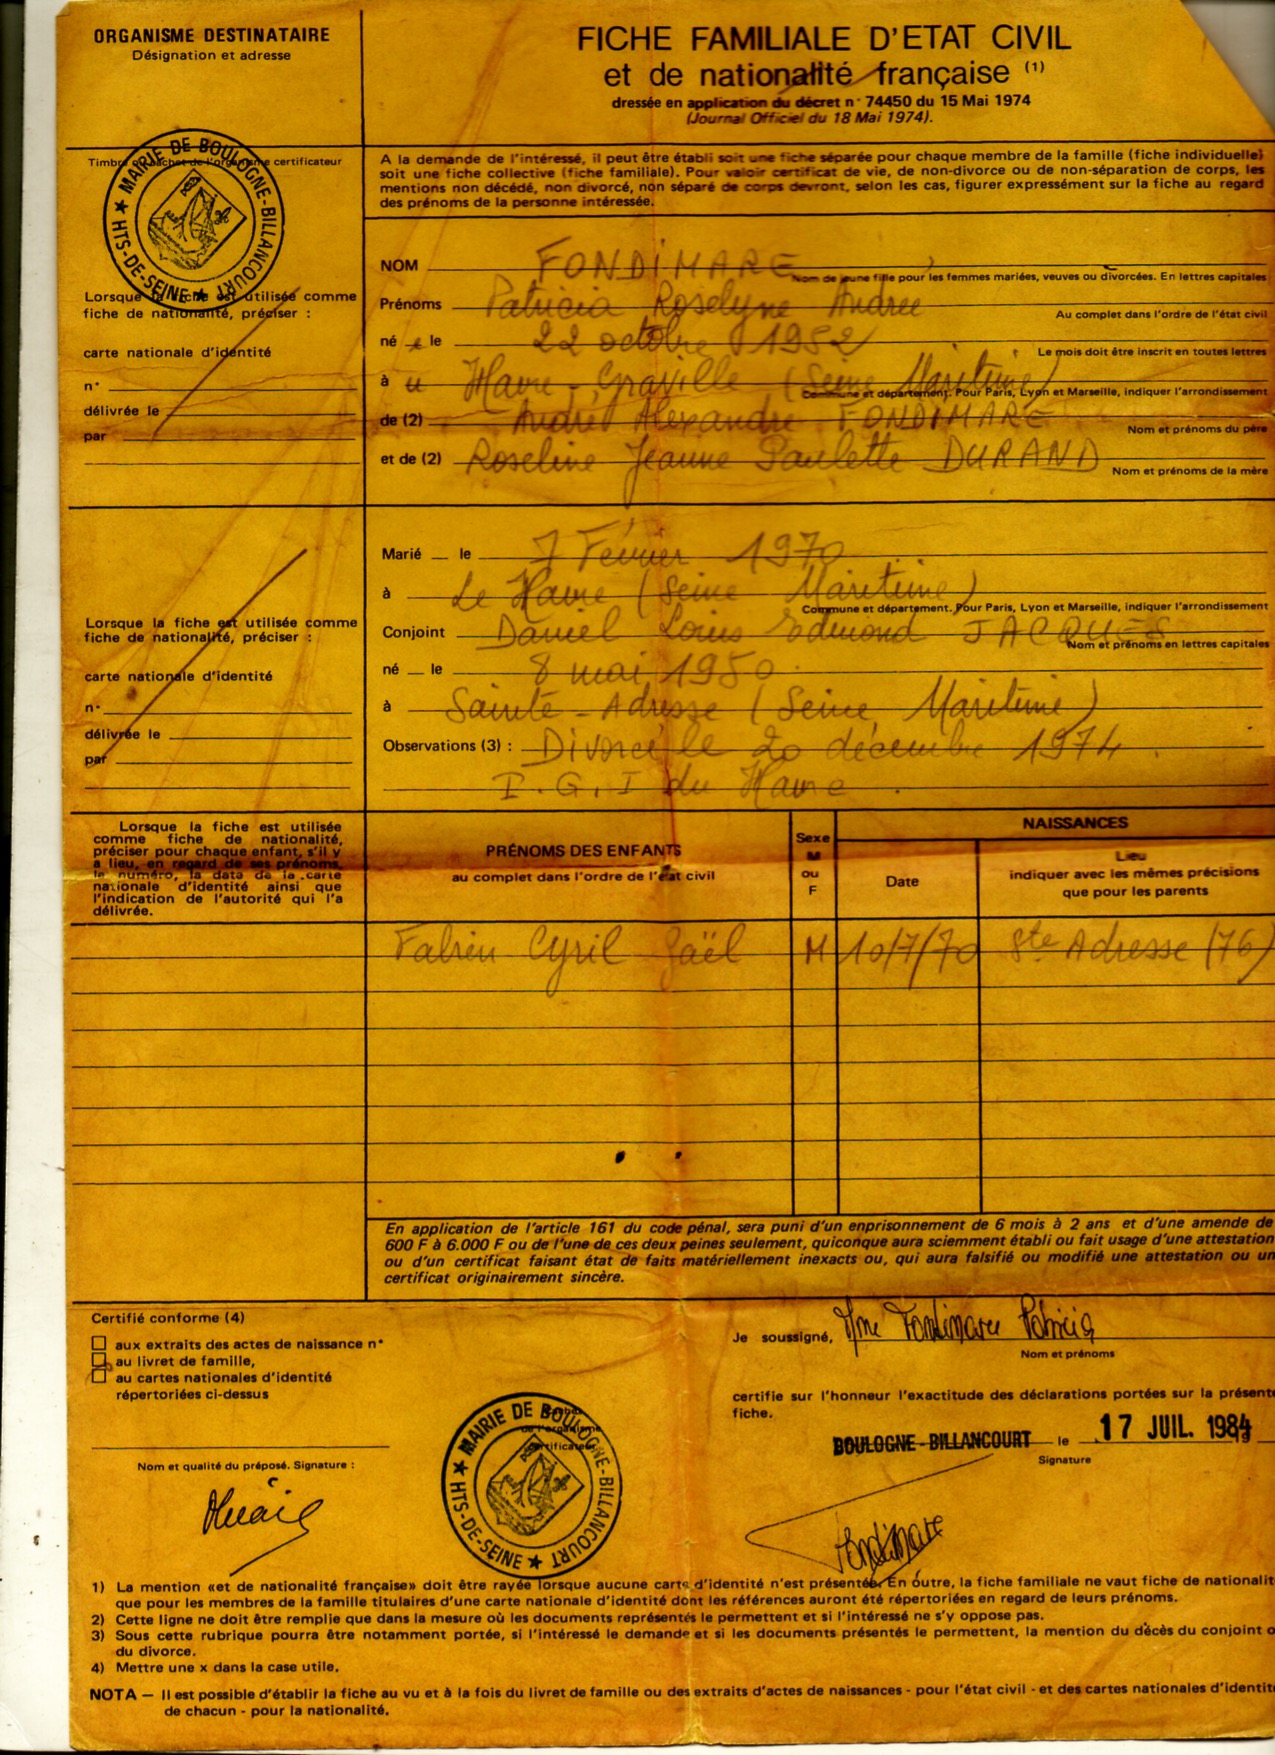 ORGANISME DESTINATAIRE
Désignation et adresse
FICHE FAMILIALE D'ETAT CIVIL
et de nationalité française (1)
dressée en application du décret n° 74450 du 15 Mai 1974
(Journal Officiel du 18 Mai 1974).
Timbre ou cachet de l'organisme certificateur
MAIRIE DE BOULOGNE-BILLANCOURT ★ HTS-DE-SEINE ★
A la demande de l'intéressé, il peut être établi soit une fiche séparée pour chaque membre de la famille (fiche individuelle)
soit une fiche collective (fiche familiale). Pour valoir certificat de vie, de non-divorce ou de non-séparation de corps, les
mentions non décédé, non divorcé, non séparé de corps devront, selon les cas, figurer expressément sur la fiche au regard
des prénoms de la personne intéressée.
NOM FONDIMARE
Nom de jeune fille pour les femmes mariées, veuves ou divorcées. En lettres capitales
Prénoms Patricia Roselyne Andree
Au complet dans l'ordre de l'état civil
né e le 22 octobre 1952
Le mois doit être inscrit en toutes lettres
à u Havre - Graville (Seine Maritime)
Commune et département. Pour Paris, Lyon et Marseille, indiquer l'arrondissement
de (2) André Alexandre FONDIMARE
Nom et prénoms du père
et de (2) Roseline Jeanne Paulette DURAND
Nom et prénoms de la mère
Lorsque la fiche est utilisée comme
fiche de nationalité, préciser :
carte nationale d'identité
n°
délivrée le
par
Marié le 7 Février 1970
à Le Havre (Seine Maritime)
Commune et département. Pour Paris, Lyon et Marseille, indiquer l'arrondissement
Conjoint Daniel Louis Edmond JACQUES
Nom et prénoms en lettres capitales
né le 8 mai 1950
à Sainte-Adresse (Seine Maritime)
Observations (3) : Divorcé le 20 décembre 1974
T.G.I du Havre
Lorsque la fiche est utilisée comme
fiche de nationalité, préciser :
carte nationale d'identité
n°
délivrée le
par
Lorsque la fiche est utilisée
comme fiche de nationalité,
préciser pour chaque enfant, s'il y
a lieu, en regard de ses prénoms,
le numéro, la date de la carte
nationale d'identité ainsi que
l'indication de l'autorité qui l'a
délivrée.
PRÉNOMS DES ENFANTS
au complet dans l'ordre de l'état civil
Sexe
M
ou
F
NAISSANCES
Date
Lieu
indiquer avec les mêmes précisions
que pour les parents
Fabien Cyril Gaël M 10/7/70 Ste Adresse (76)
En application de l'article 161 du code pénal, sera puni d'un enprisonnement de 6 mois à 2 ans et d'une amende de
600 F à 6.000 F ou de l'une de ces deux peines seulement, quiconque aura sciemment établi ou fait usage d'une attestation
ou d'un certificat faisant état de faits matériellement inexacts ou, qui aura falsifié ou modifié une attestation ou un
certificat originairement sincère.
Certifié conforme (4)
aux extraits des actes de naissance n°
au livret de famille,
au cartes nationales d'identité
répertoriées ci-dessus
Nom et qualité du préposé. Signature :
MAIRIE DE BOULOGNE-BILLANCOURT ★ HTS-DE-SEINE ★
Je soussigné, Mme Fondimare Patricia
Nom et prénoms
certifie sur l'honneur l'exactitude des déclarations portées sur la présente
fiche.
BOULOGNE-BILLANCOURT le 17 JUIL. 1984
Signature
Fondimare
1) La mention «et de nationalité française» doit être rayée lorsque aucune carte d'identité n'est présentée. En outre, la fiche familiale ne vaut fiche de nationalit
que pour les membres de la famille titulaires d'une carte nationale d'identité dont les références auront été répertoriées en regard de leurs prénoms.
2) Cette ligne ne doit être remplie que dans la mesure où les documents représentés le permettent et si l'intéressé ne s'y oppose pas.
3) Sous cette rubrique pourra être notamment portée, si l'intéressé le demande et si les documents présentés le permettent, la mention du décès du conjoint o
du divorce.
4) Mettre une x dans la case utile.
NOTA — Il est possible d'établir la fiche au vu et à la fois du livret de famille ou des extraits d'actes de naissances - pour l'état civil - et des cartes nationales d'identité
de chacun - pour la nationalité.